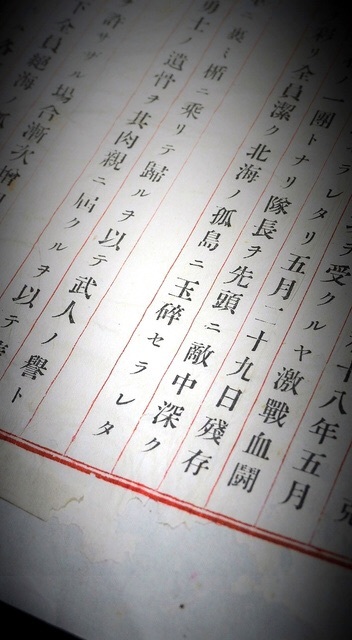 十八年五月
受クルヤ激戰血鬪
ラレタリ五月二十九日殘存
一團トナリ隊長ヲ先頭ニ敵中深ク
リ全員潔ク北海ノ孤島ニ玉碎セラレタ
ニ裏ミ楯ニ乘リテ歸ルヲ以テ武人ノ譽ト
勇士ノ遺骨ヲ其肉親ニ屆クルヲ以テ
ヲ許サザル場合漸次
下全員絕海ノ孤